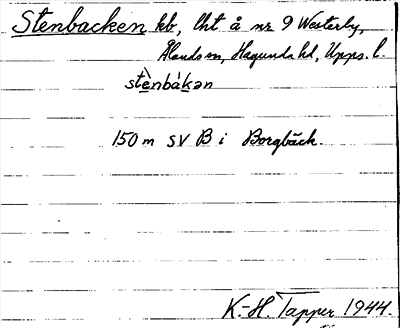 Stenbacken kb, lht å nr 9 Westerby,
Ålands sn, Hagunda hd, Upps. l.
stènbákən
150 m SV B i Borgbäck.
K.-H. Tapper 1944.